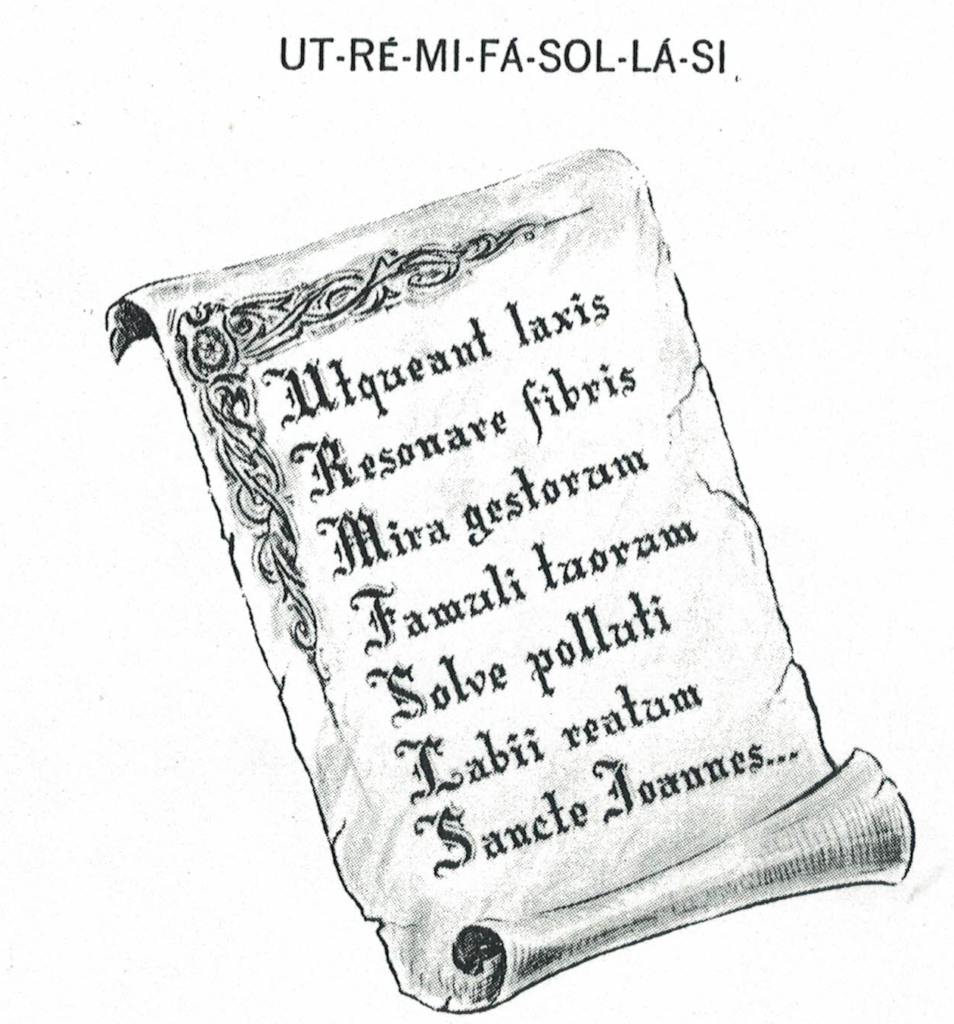 UT-RÉ-MI-FÁ-SOL-LÁ-SI
Utqueant laxis
Resonare fibris
Mira gestorum
Famuli tuorum
Solve polluti
Labii reatum
Sancte Joannes...